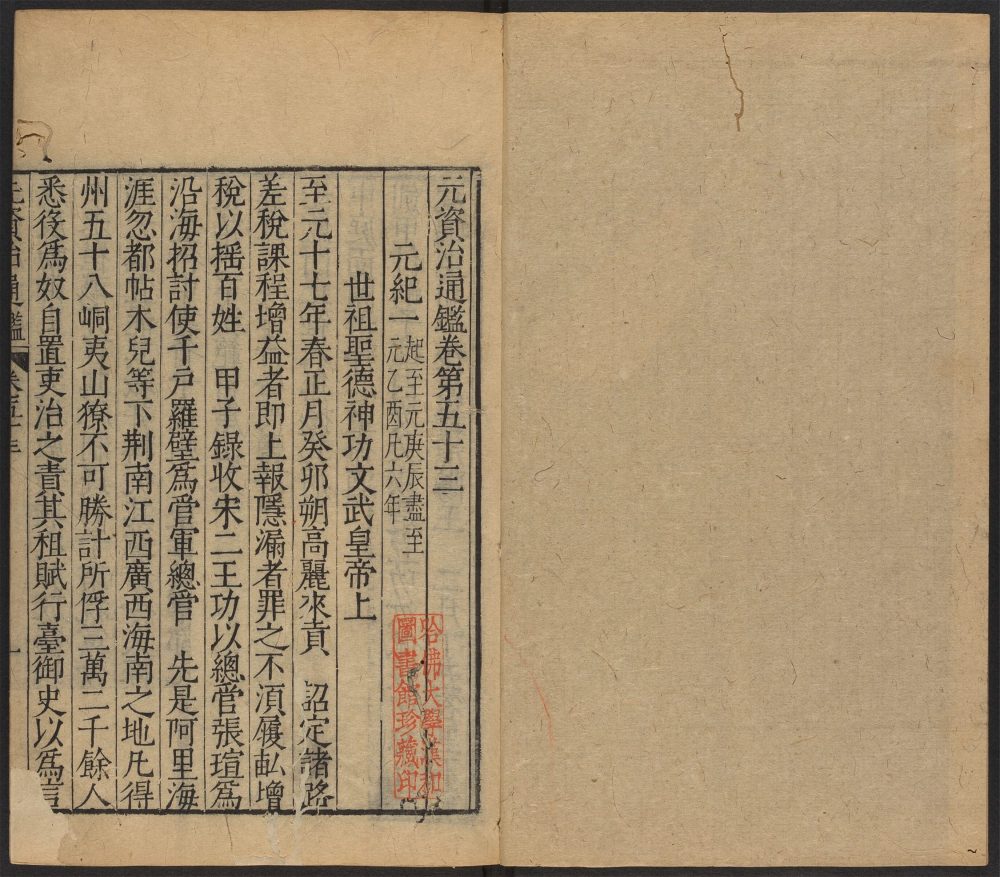 元資治通鑑卷第五十三
元紀一
起至元庚辰盡至
元乙酉凡六年
世祖聖德神功文武皇帝上
至元十七年春正月癸卯朔高麗來貢 詔定諸路
差稅課程增益者即上報隱漏者罪之不湏履畝增
稅以摇百姓 甲子錄收宋二王功以總管張瑄爲
沿海招討使千戶羅璧爲管軍總管 先是阿里海
涯忽都帖木兒等下荆南江西廣西海南之地凡得
州五十八峒夷山獠不可勝計所俘三萬二千餘人
悉役爲奴自置吏治之責其租賦行臺御史以爲言
元資治通鑑 卷五十三 一
哈佛大學漢和
圖書館珍藏印